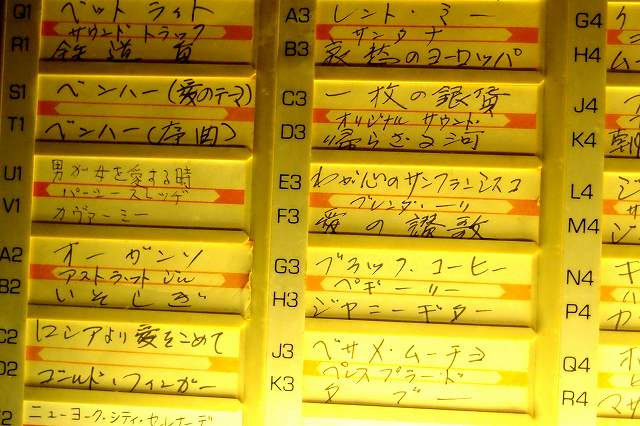 Q1
ベット ライト
サウンド・トラック
R1
鉄道員
S1
ベンハー(愛のテーマ)
T1
ベンハー(序曲)
U1
男が女を愛する時
パーシー・スレッヂ
V1
カヴァーミー
A2
アストラット・ジル
B2
いそしぎ
C2
ロシアより愛をこめて
D2
ゴールド・フィンガー
ニューヨーク・シティ・セレナーデ
A3
レント・ミー
サンタナ
B3
哀愁のヨーロッパ
C3
一枚の銀貨
オリジナル サウンド・
D3
帰らざる河
E3
わが心のサンフランシスコ
ブレンダ・リー
F3
愛の讃歌
G3
ブラック・コーヒー
ペギー・リー
H3
ジャニーギター
J3
ベサメ・ムーチョ
ペレス プラード
K3
タブー
G4
H4
J4
K4
L4
M4
N4
P4
Q4
R4
マサ